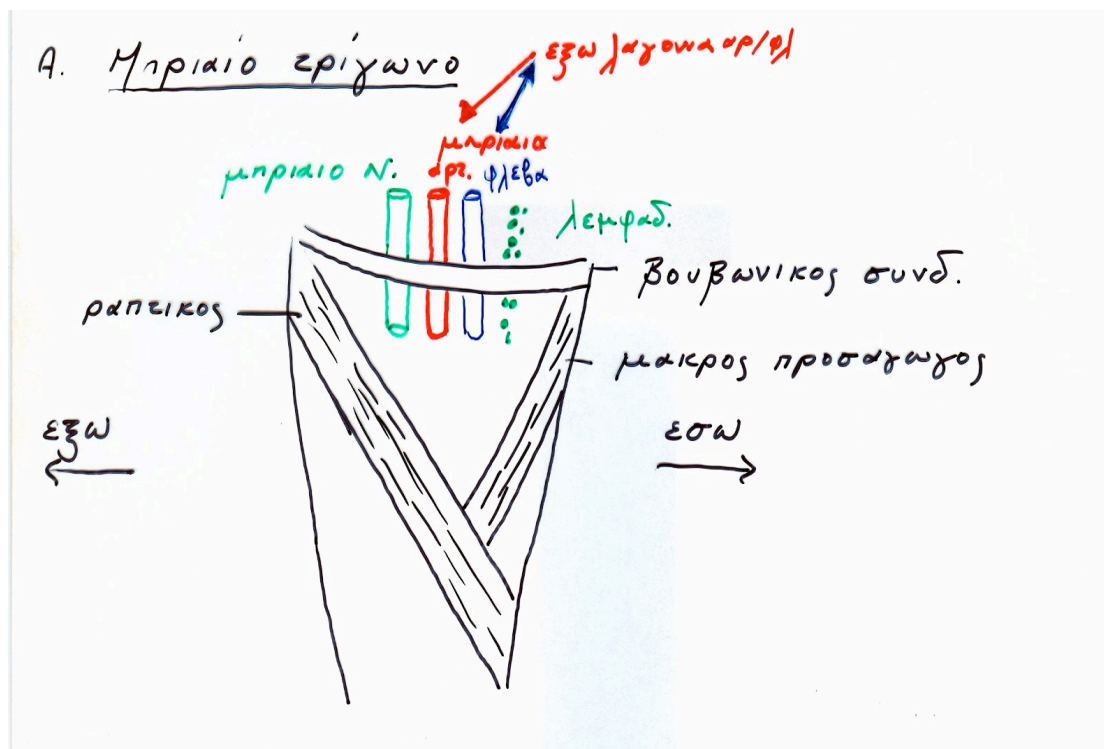 Α. Μηριαίο τρίγωνο
εξω λαγονια αρ/φλ
μηριαια
μηριαιο Ν. αρτ. φλεβα
λεμφαδ.
βουβωνικος συνδ.
ραπτικος
μακρος προσαγωγος
εξω
εσω